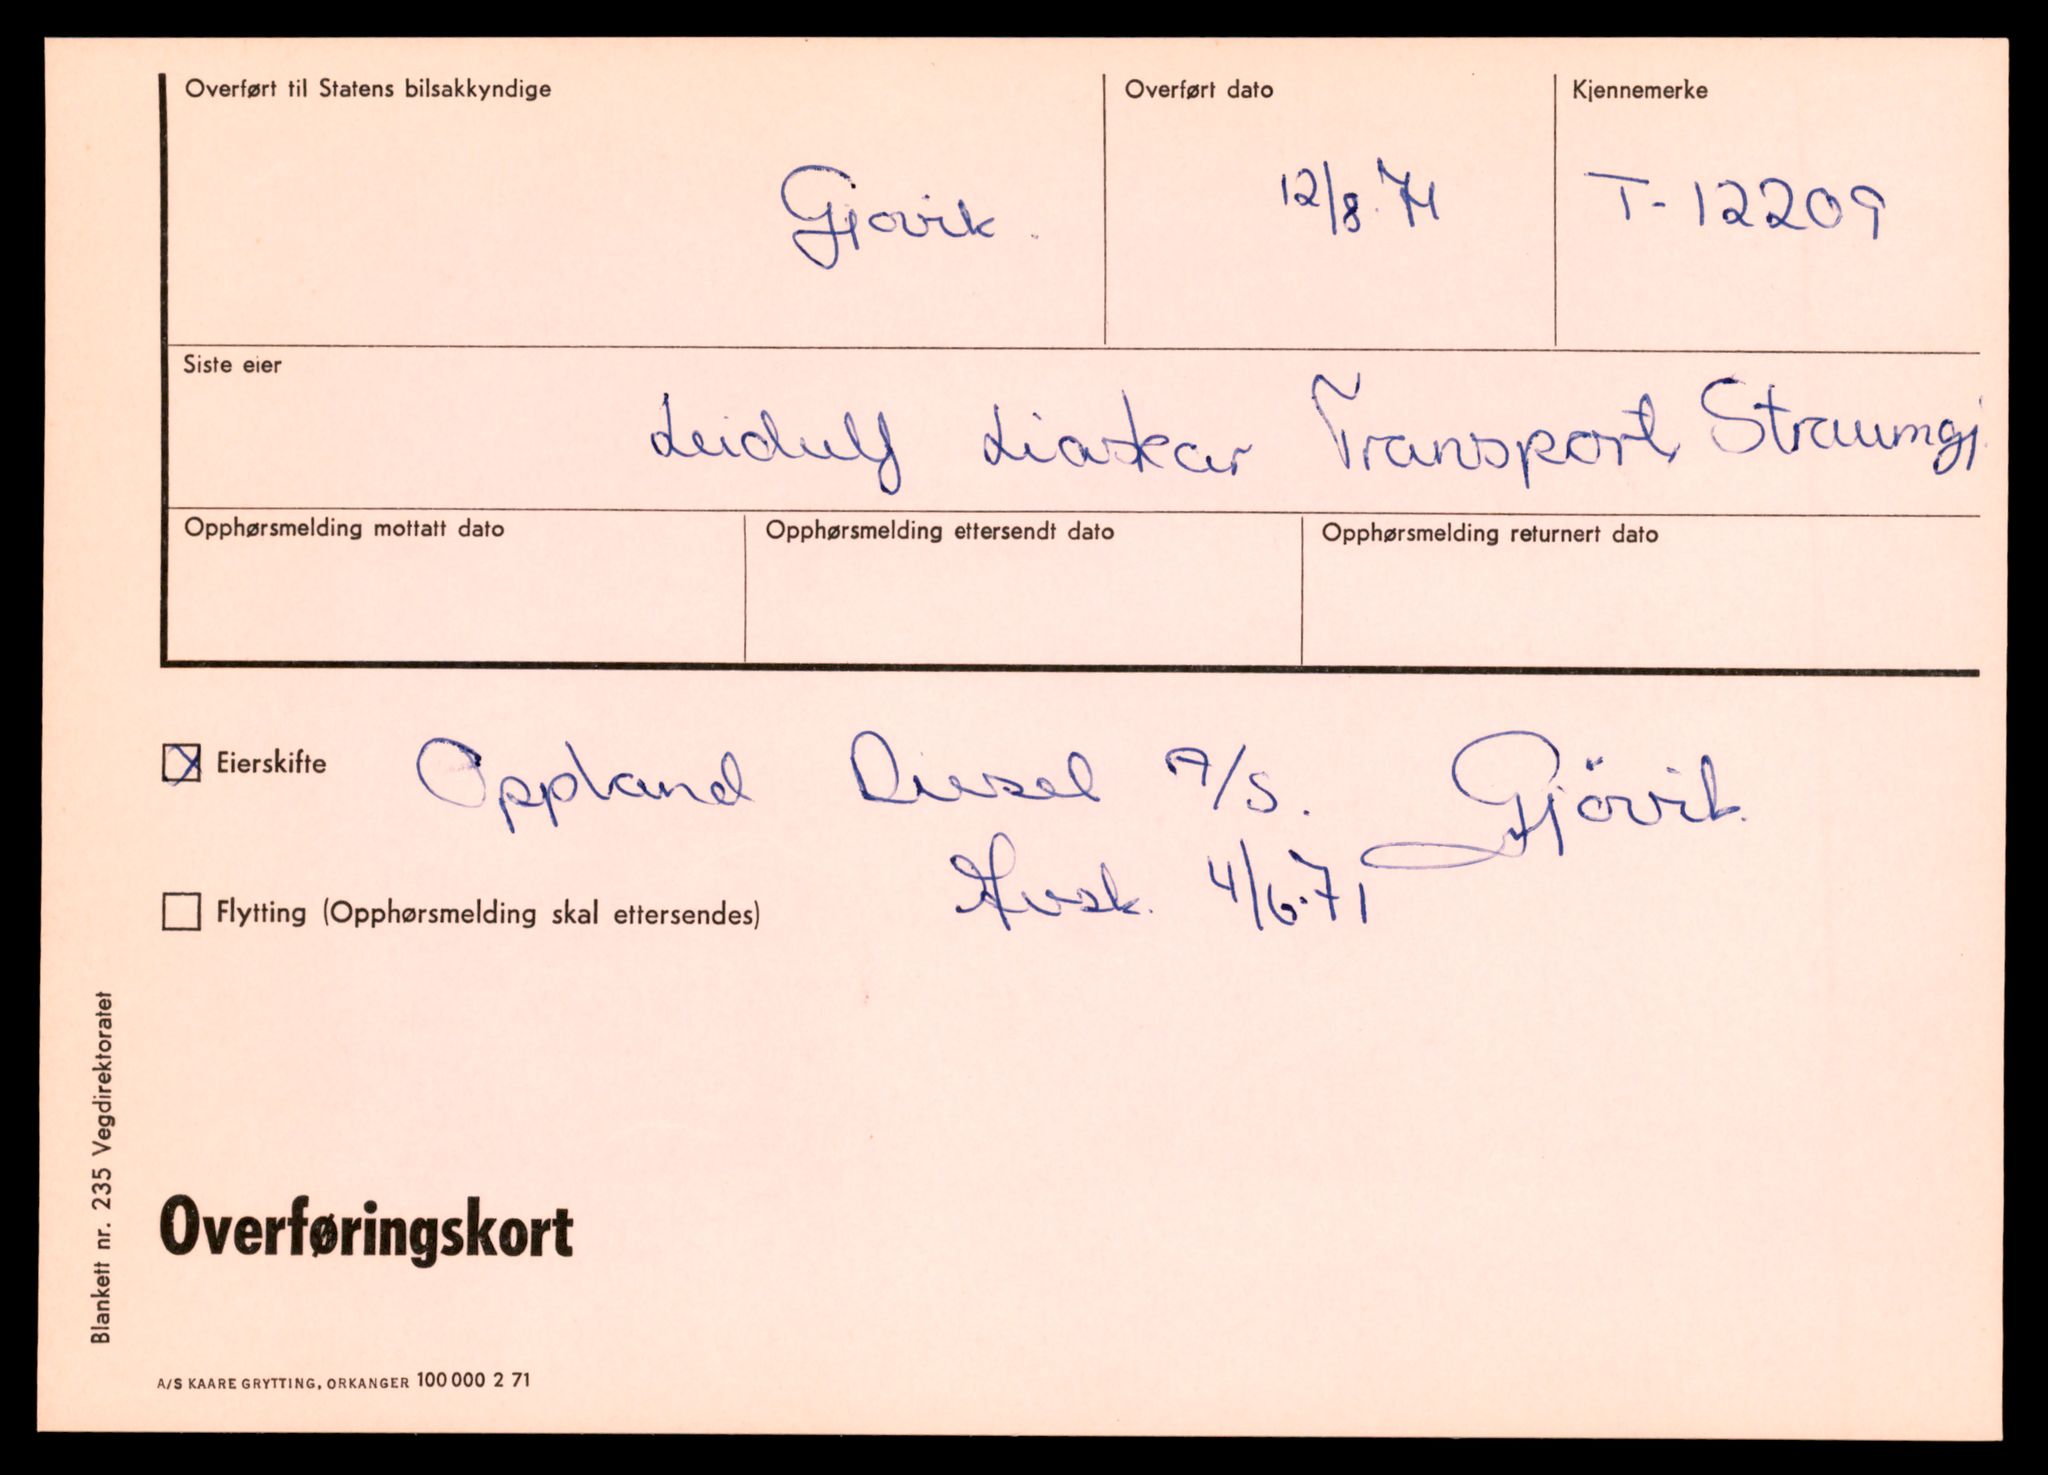 Overført til Statens bilsakkyndige
Overført dato
Kjennemerke
Gjøvik.
12/8.71
T-12209
Siste eier
Leidulf Liaskar Transport Straumgj.
Opphørsmelding mottatt dato
Opphørsmelding ettersendt dato
Opphørsmelding returnert dato
Eierskifte
Oppland Diesel A/S. Gjövik.
4/6.71
Flytting (Opphørsmelding skal ettersendes)
Blankett nr. 235 Vegdirektoratet
Overføringskort
A/S KAARE GRYTTING, ORKANGER 100 000 2 71